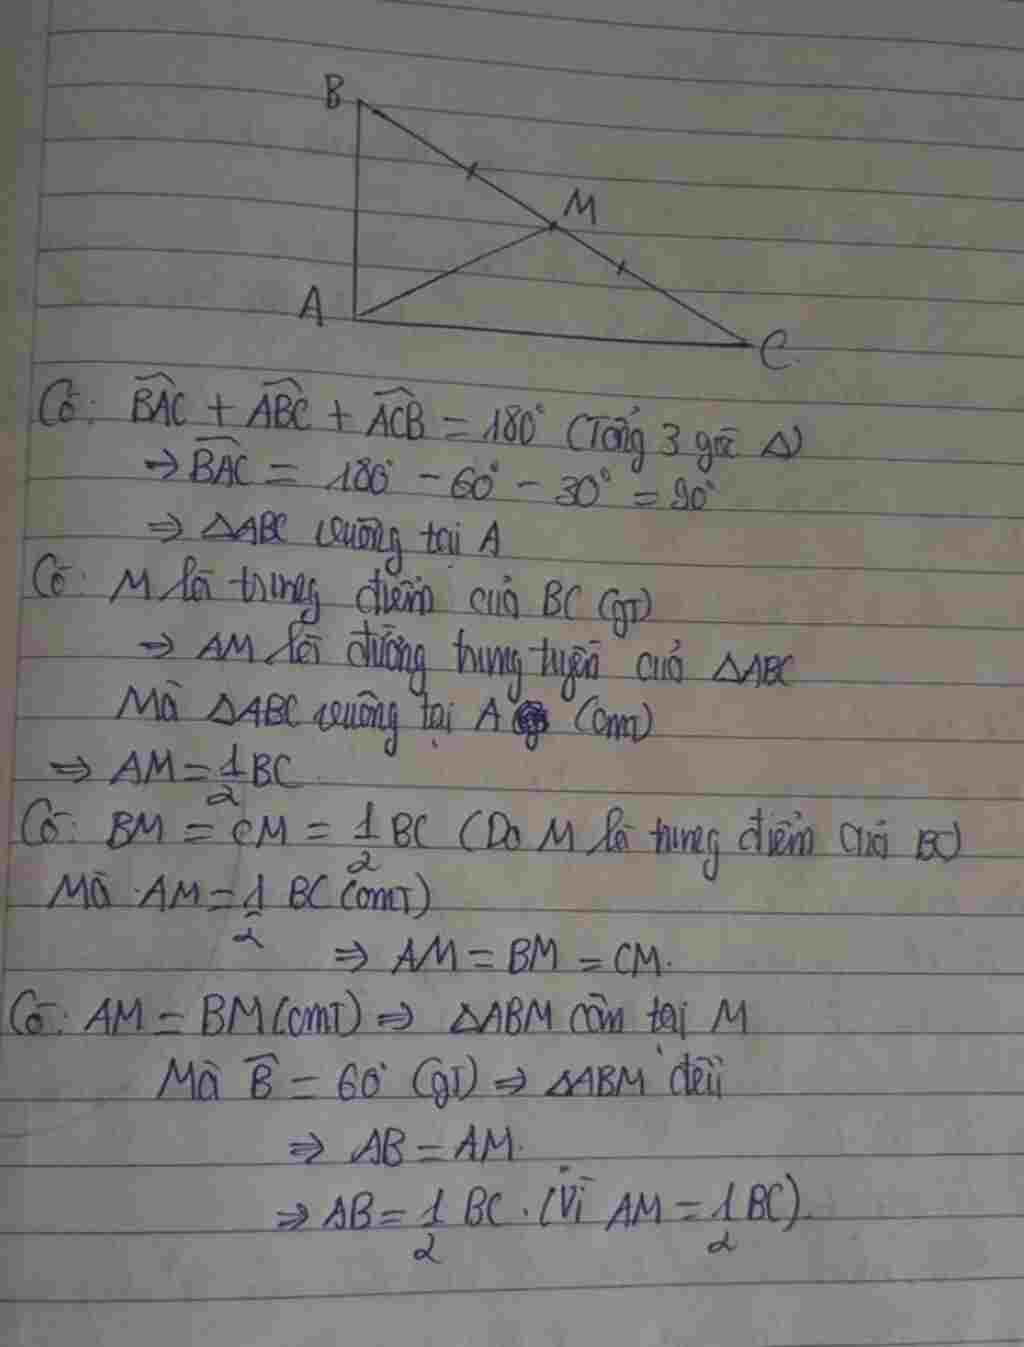 B
M
A
C
Có: BAC + ABC + ACB = 180° (Tổng 3 góc Δ)
⇒ BAC = 180° - 60° - 30° = 90°
⇒ ΔABC vuông tại A
Có: M là trung điểm của BC (gt)
⇒ AM là đường trung tuyến của ΔABC
Mà ΔABC vuông tại A (cmt)
⇒ AM = 1/2 BC
Có: BM = CM = 1/2 BC (Do M là trung điểm của BC)
Mà AM = 1/2 BC (cmt)
⇒ AM = BM = CM.
Có: AM = BM (cmt) ⇒ ΔABM cân tại M
Mà B = 60° (gt) ⇒ ΔABM đều
⇒ AB = AM.
⇒ AB = 1/2 BC. (Vì AM = 1/2 BC).